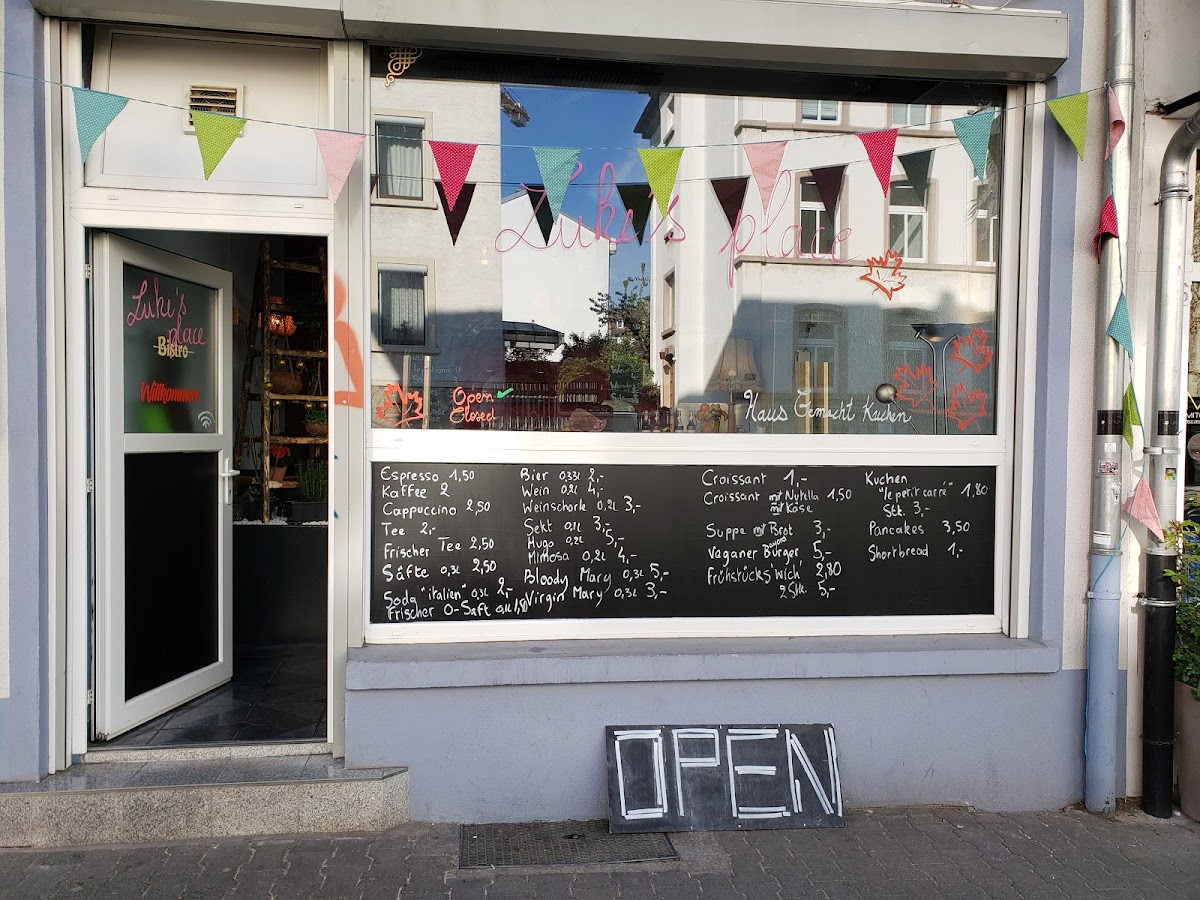 Luke's place
Luke's
place
Bistro
Willkommen
Open
Closed
Haus Gemacht Kuchen
Espresso 1,50
Kaffee 2
Cappuccino 2,50
Tee 2,-
Frischer Tee 2,50
Säfte 0,3L 2,50
Soda "italien" 0,3L 2,-
Frischer O-Saft 0,1L 1,8
Bier 0,33L 2,-
Wein 0,2L 4,-
Weinschorle 0,2L 3,-
Sekt 0,1L 3,-
Hugo 0,2L 5,-
Mimosa 0,2L 4,-
Bloody Mary 0,3L 5,-
Virgin Mary 0,3L 3,-
Croissant 1,-
Croissant mit Nutella 1,50
mit Käse
Suppe mit Brot 3,-
Veganer Burger 5,-
Frühstücks'wich' 2,80
2 Stk. 5,-
Kuchen
"le petit carré" 1,80
Stk. 3,-
Pancakes 3,50
Shortbread 1,-
OPEN